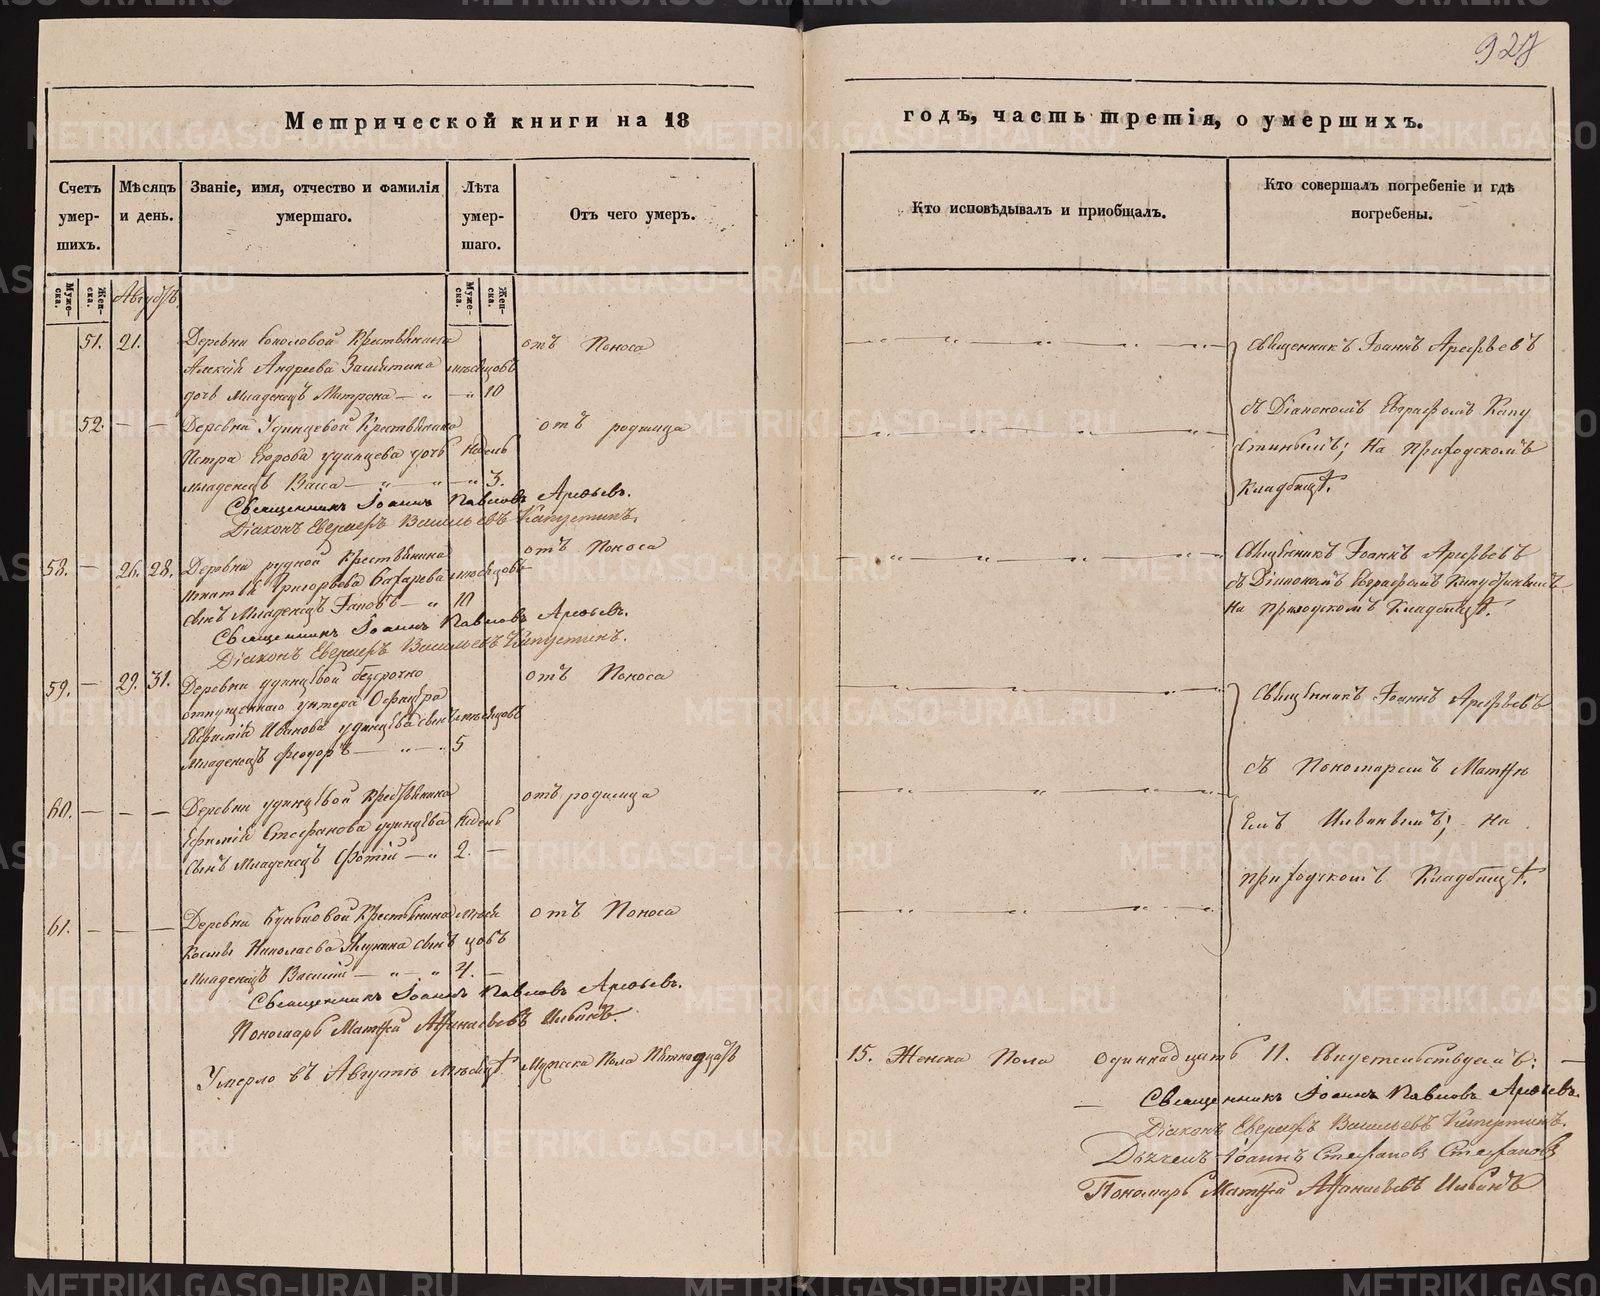 928
Метрической книги на 18 годъ, часть третія, о умершихъ.
Счетъ умер-шихъ.
Мѣсяцъ и день.
Званіе, имя, отчество и фамилія умершаго.
Лѣта умер-шаго.
Отъ чего умеръ.
Кто исповѣдывалъ и приобщалъ.
Кто совершалъ погребеніе и гдѣ погребены.
Муже-ска.
Жен-ска.
Августъ.
Муже-ска.
Жен-ска.
51. 21. Деревни Соколовой Крестьянина отъ Поноса Священникъ Іоаннъ Арефьевъ
Алексѣя Андреева Замятина мѣсяцовъ
дочь Младенецъ Матрона 10 съ Діакономъ Капу
52. Деревни Удинцевой Крестьянина отъ родимца
Петра Егорова Удинцева дочь недѣль стинымъ; на приходскомъ
Младенецъ Васса 3. Кладбищѣ.
Священникъ Іоаннъ Павловъ Арефьевъ.
Діаконъ Васильевъ Капустинъ.
58. 26. 28. Деревни рудной Крестьянина отъ Поноса Священникъ Іоаннъ Арефьевъ
Игнатія Григорьева мѣсяцовъ съ Діакономъ Капустинымъ
сынъ Младенецъ 10 на приходскомъ Кладбищѣ.
Священникъ Іоаннъ Павловъ Арефьевъ.
Діаконъ Васильевъ Капустинъ.
59. 29. 31. Деревни Удинцовой безсрочно отъ Поноса Священникъ Іоаннъ Арефьевъ
отпущеннаго унтера Офицера
Иванова Удинцева сынъ мѣсяцовъ
Младенецъ Феодоръ 5 съ Пономаремъ Матѳѣ
60. Деревни Удинцовой Крестьянина отъ родимца
Ефимія Стефанова Удинцева недѣль емъ Ильинымъ; на
Сынъ Младенецъ Фотій 2. приходскомъ Кладбищѣ.
61. Деревни Крестьянина мѣся отъ Поноса
Космы Николаева сынъ цовъ
Младенецъ Василій 4.
Священникъ Іоаннъ Павловъ Арефьевъ.
Пономарь Матѳей Аѳанасьевъ Ильинъ.
Умерло въ Августѣ мѣсяцѣ Мужеска Пола Пятнадцать 15. Женска Пола одиннадцать 11. Свидетельствуемъ:
Священникъ Іоаннъ Павловъ Арефьевъ.
Діаконъ Васильевъ Капустинъ.
Дьячекъ Іоаннъ Стефановъ Стефановъ
Пономарь Матѳей Аѳанасьевъ Ильинъ
METRIKI.GASO-URAL.RU